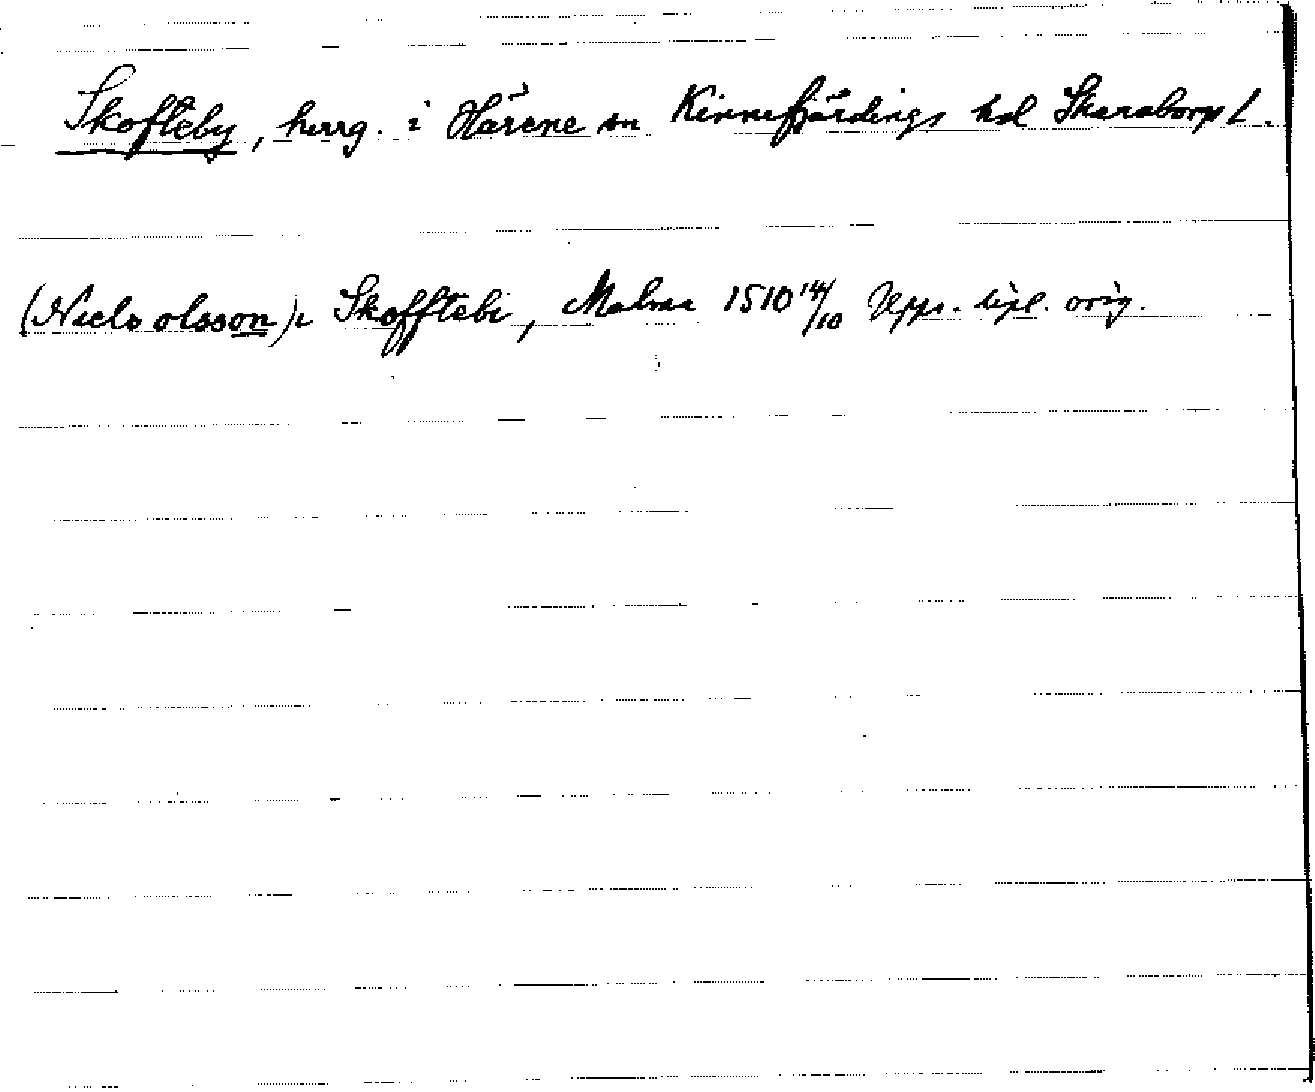 Skofteby, herrg. i Härene sn Kinnefjärdings hd Skaraborgs L.
(Niclo olsson) i Skofftebi, Malma 1510 14/10 Upps. dipl. orig.